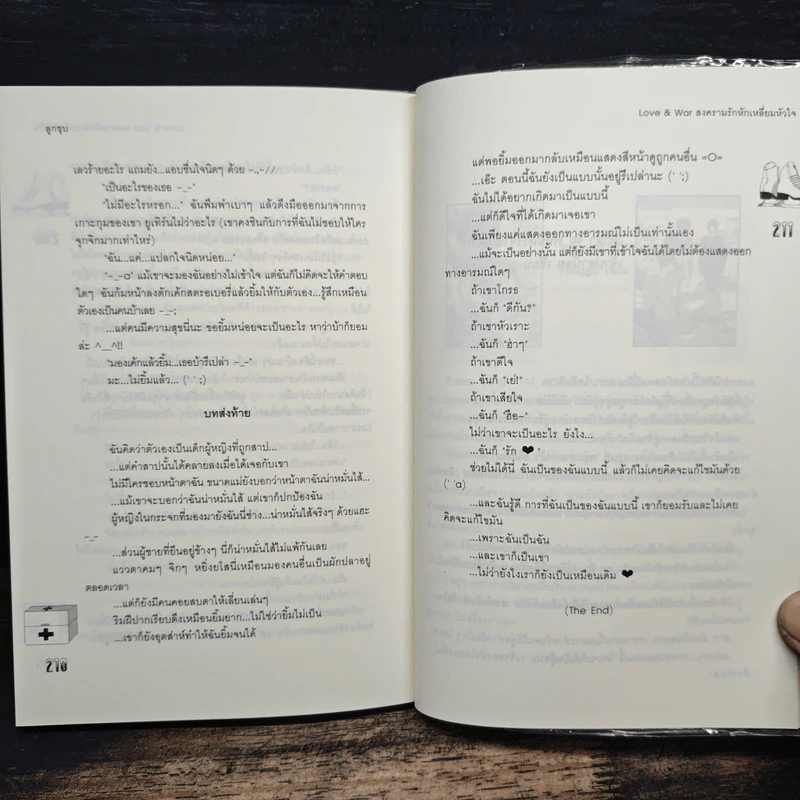 ลูกชุบ
เลวร้ายอะไร แถมยัง...แอบชื่นใจนิดๆ ด้วย -.,-//
"เป็นอะไรของเธอ -_-"
"ไม่มีอะไรหรอก..." ฉันพึมพำเบาๆ แล้วดึงมือออกมาจากการ
เกาะกุมของเขา ยูเทิร์นไม่ว่าอะไร (เขาคงชินกับการที่ฉันไม่ชอบให้ใคร
จุกจิกมากเท่าไหร่)
"ฉัน...แค่...แปลกใจนิดหน่อย..."
"-_-a" แม้เขาจะมองฉันอย่างไม่เข้าใจ แต่ฉันก็ไม่คิดจะให้คำตอบ
ใดๆ ฉันก้มหน้าลงตักเค้กสตรอเบอรี่แล้วยิ้มให้กับตัวเอง...รู้สึกเหมือน
ตัวเองเป็นคนบ้าเลย -_-;
...แต่คนมีความสุขนี่นะ ขอยิ้มหน่อยจะเป็นอะไร หาว่าบ้าก็ยอม
ล่ะ ^__^!!
"มองเค้กแล้วยิ้ม...เธอบ้ารึเปล่า -_-"
มะ...ไม่ยิ้มแล้ว... (' ' ;)
บทส่งท้าย
ฉันคิดว่าตัวเองเป็นเด็กผู้หญิงที่ถูกสาป...
...แต่คำสาปนั้นได้คลายลงเมื่อได้เจอกับเขา
ไม่มีใครชอบหน้าตาฉัน ขนาดแม่ยังบอกว่าหน้าตาฉันน่าหมั่นไส้...
...แม้เขาจะบอกว่าฉันน่าหมั่นไส้ แต่เขาก็ปกป้องฉัน
ผู้หญิงในกระจกที่มองมายังฉันนี่ช่าง...น่าหมั่นไส้จริงๆ ด้วยแฮะ
-_-
...ส่วนผู้ชายที่ยืนอยู่ข้างๆ นี่ก็น่าหมั่นไส้ไม่แพ้กันเลย
แววตาคมๆ จิกๆ หยิ่งยโสนี่เหมือนมองคนอื่นเป็นผักปลาอยู่
ตลอดเวลา
...แต่ก็ยังมีคนคอยสบตาให้เลี่ยนเล่นๆ
ริมฝีปากเรียบตึงเหมือนยิ้มยาก...ไม่ใช่ว่ายิ้มไม่เป็น
...เขาก็ยังอุตส่าห์ทำให้ฉันยิ้มจนได้
210
Love & War สงครามรักหักเหลี่ยมหัวใจ
แต่พอยิ้มออกมากลับเหมือนแสดงสีหน้าดูถูกคนอื่น =O=
...เอ๊ะ ตอนนี้ฉันยังเป็นแบบนั้นอยู่รึเปล่านะ (' ';)
ฉันไม่ได้อยากเกิดมาเป็นแบบนี้
...แต่ก็ดีใจที่ได้เกิดมาเจอเขา
ฉันเพียงแค่แสดงออกทางอารมณ์ไม่เป็นเท่านั้นเอง
...แม้จะเป็นอย่างนั้น แต่ก็ยังมีเขาที่เข้าใจฉันได้โดยไม่ต้องแสดงออก
ทางอารมณ์ใดๆ
ถ้าเขาโกรธ
...ฉันก็ "ดีกัน?"
ถ้าเขาหัวเราะ
...ฉันก็ "ฮ่าๆ"
ถ้าเขาดีใจ
...ฉันก็ "เย่!"
ถ้าเขาเสียใจ
...ฉันก็ "ฮือ~"
ไม่ว่าเขาจะเป็นอะไร ยังไง...
...ฉันก็ "รัก ❤"
ช่วยไม่ได้นี่ ฉันเป็นของฉันแบบนี้ แล้วก็ไม่เคยคิดจะแก้ไขมันด้วย
(' 'a)
...และฉันรู้ดี การที่ฉันเป็นของฉันแบบนี้ เขาก็ยอมรับและไม่เคย
คิดจะแก้ไขมัน
...เพราะฉันเป็นฉัน
...และเขาก็เป็นเขา
...ไม่ว่ายังไงเราก็ยังเป็นเหมือนเดิม ❤
(The End)
211